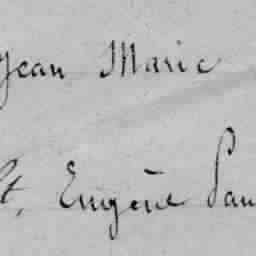 Jean Marie
St, Eugène Pau